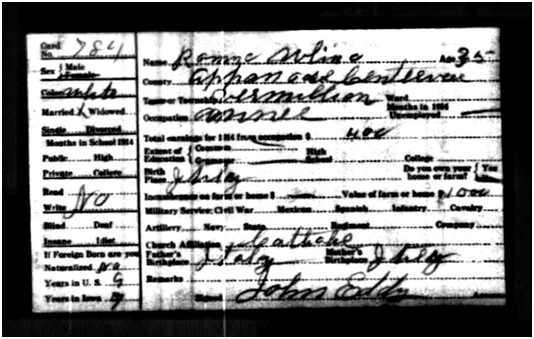 Card No. 784
Sex { Male Female
Color White
Married X Widowed
Single Divorced
Months in School 1914
Public High
Private College
Read
Write No
Blind Deaf
Insane Idiot
If Foreign Born are you
Naturalized No
Years in U. S. 9
Years in Iowa 9
Name Age 35
County Appanoose Centerville
Town or Township Vermillion Ward
Occupation Miner Months in 1914 Unemployed
Total earnings for 1914 from occupation $ 400
Extent of Education { Common Grammar High School College
Birth Place Italy Do you own your home or farm? { Yes No
Incumbrance on farm or home $ Value of farm or home $ 1000
Military Service: Civil War Mexican Spanish Infantry Cavalry
Artillery Navy State Regiment Company
Church Affiliation Catholic
Father's Birthplace Italy Mother's Birthplace Italy
Remarks
Signed John Eddy